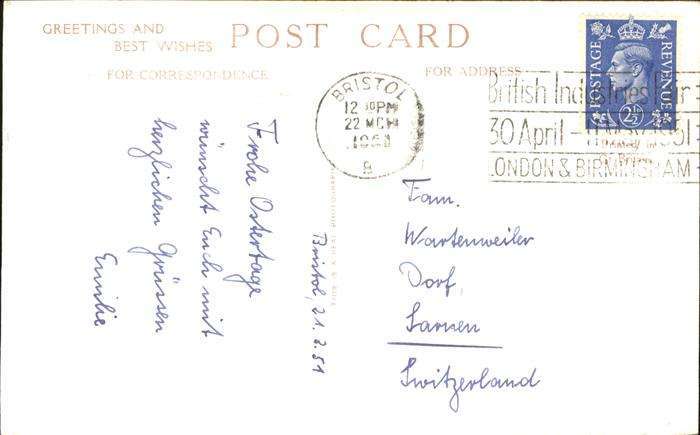 GREETINGS AND
BEST WISHES
POST CARD
FOR CORRESPONDENCE
FOR ADDRESS
BRISTOL
12 10 PM
22 MCH
1951
8
British Industries Fair
30 April - 11 May 1951
LONDON & BIRMINGHAM
POSTAGE
REVENUE
2½
Frohe Ostertage
wünscht Euch mit
herzlichen Grüssen
Emilie
Bristol, 21.3.51
Fam.
Wartenweiler
Dorf,
Sarnen
Switzerland